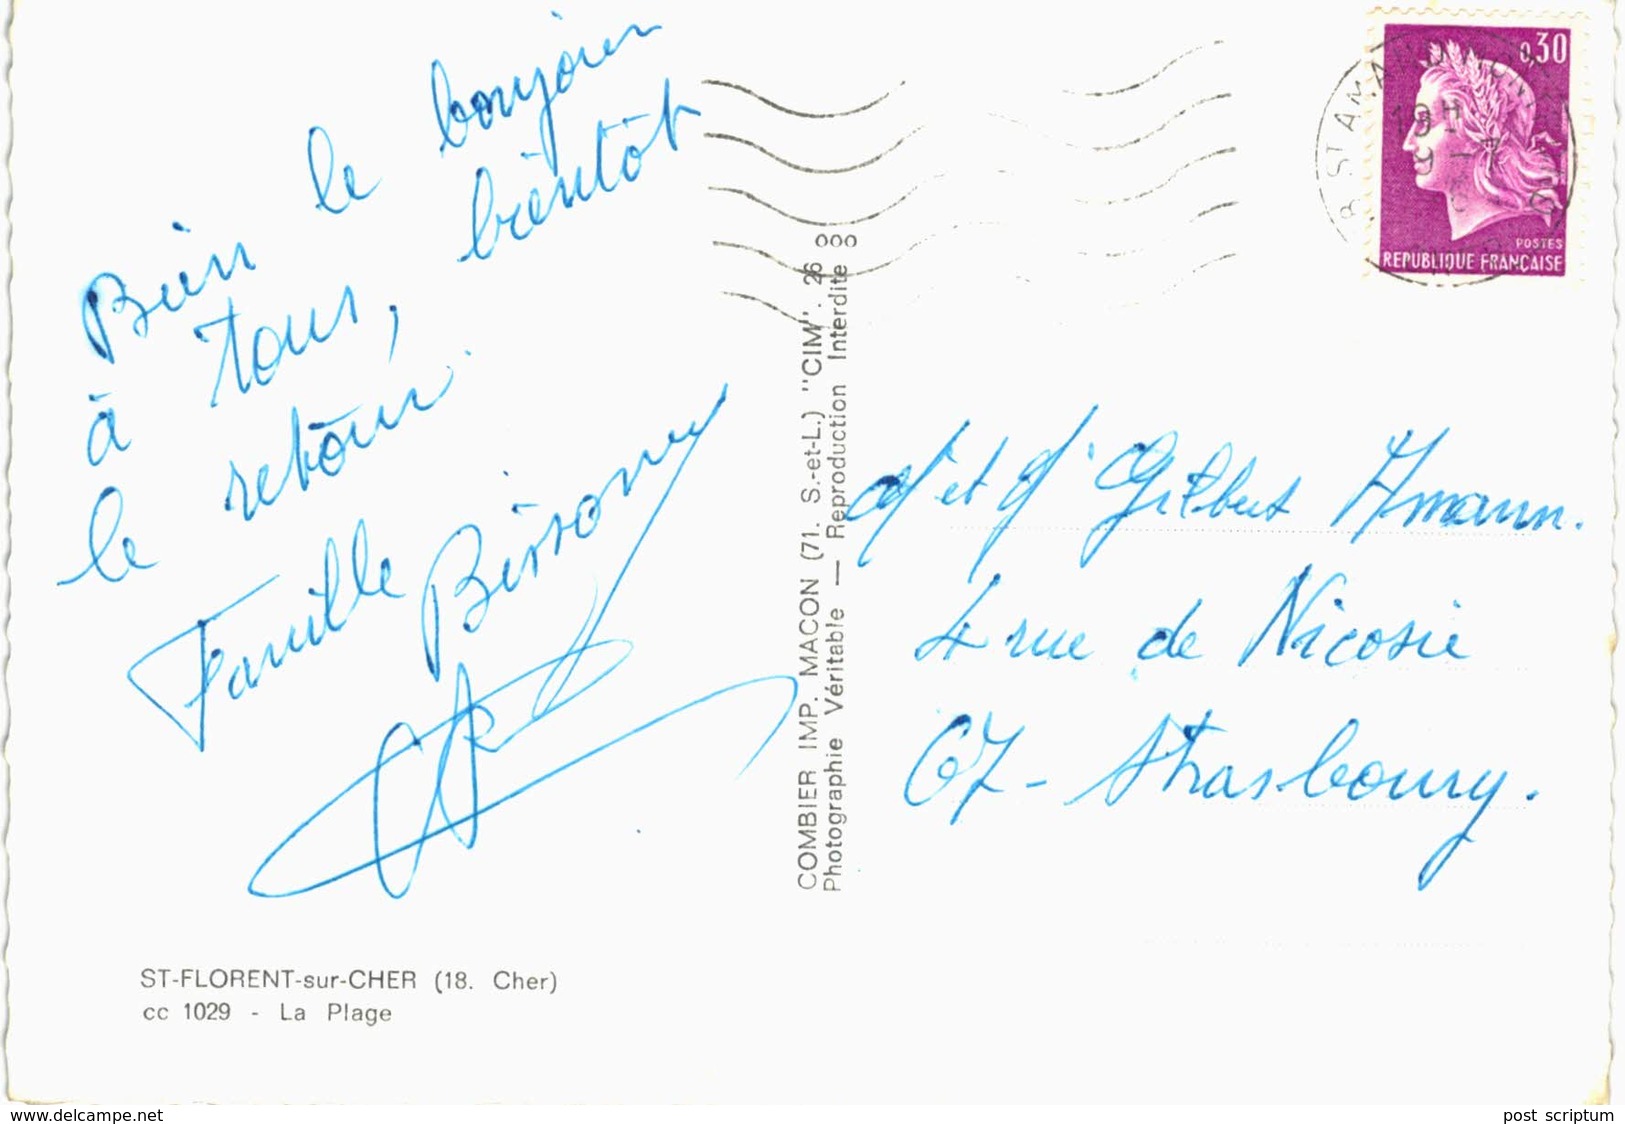 Bien le bonjour
à tous, bientôt
le retour.
Famille
0,30
POSTES
REPUBLIQUE FRANÇAISE
ST AMAND MONT
M et M Gilbert Amann.
4 rue de Nicosie
67 - Strasbourg.
COMBIER IMP. MACON (71. S.-et-L.) "CIM". 26 000
Photographie Véritable — Reproduction Interdite
ST-FLORENT-sur-CHER (18. Cher)
cc 1029 - La Plage
www.delcampe.net
post scriptum